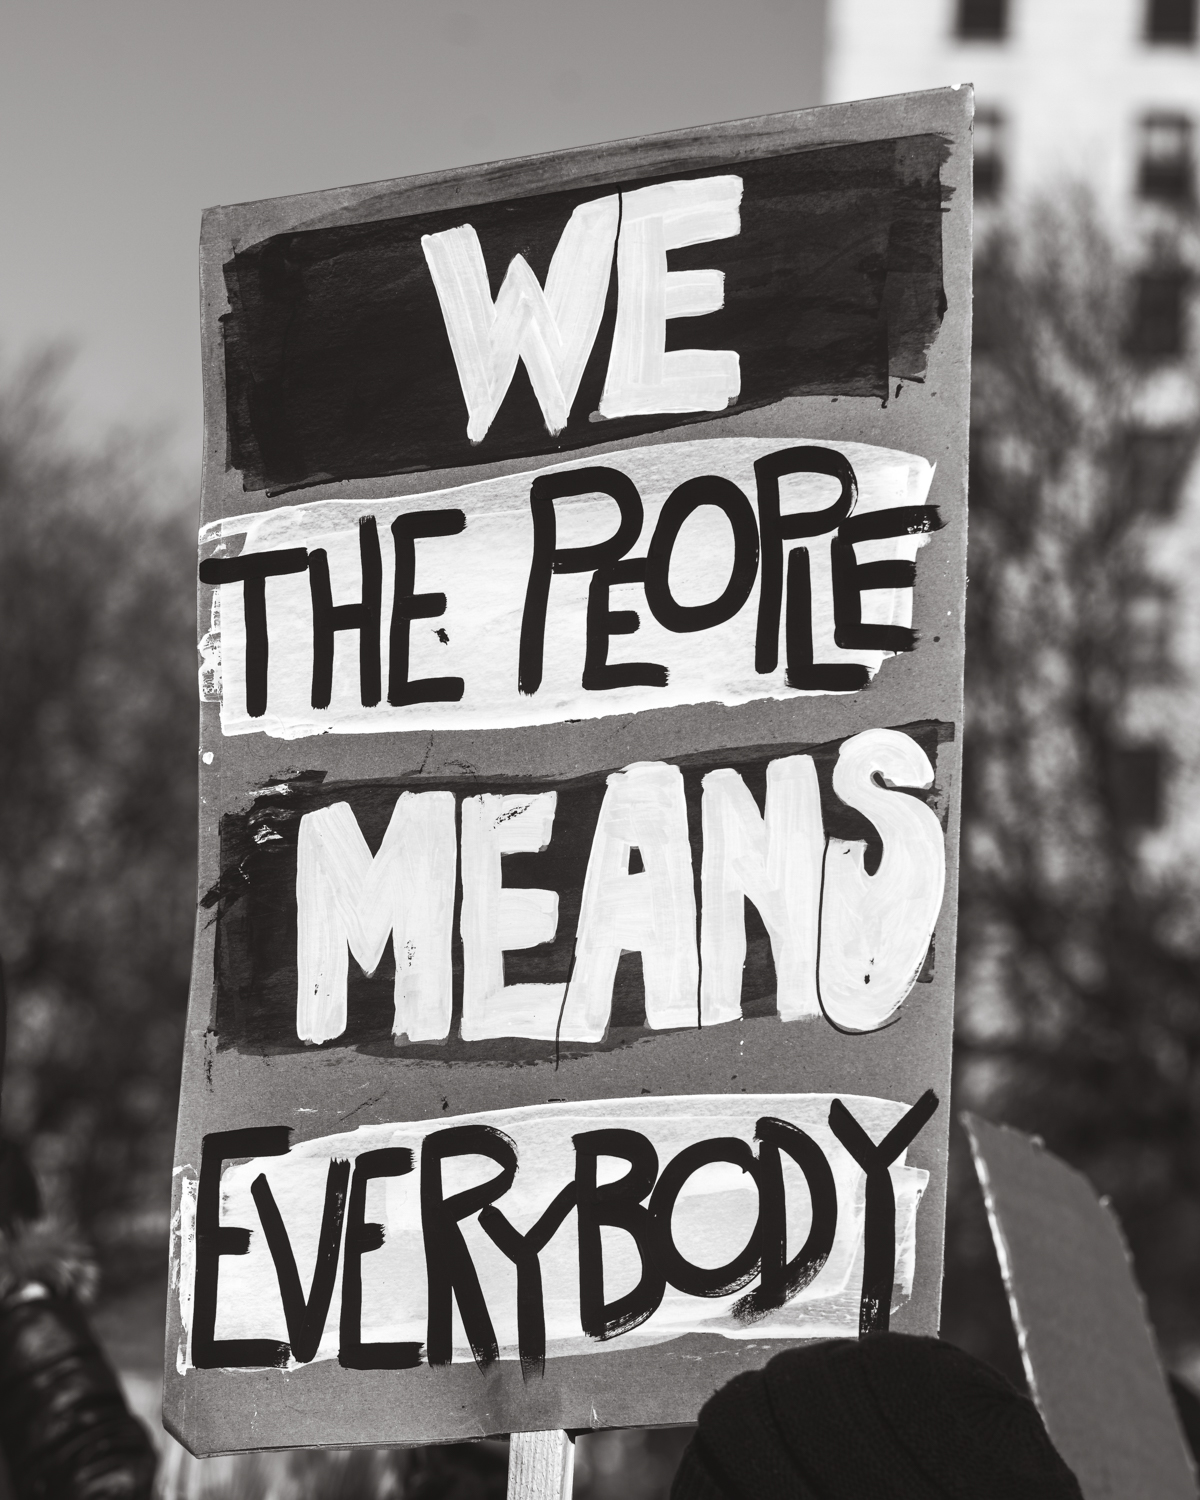 WE
THE PEOPLE
MEANS
EVERYBODY